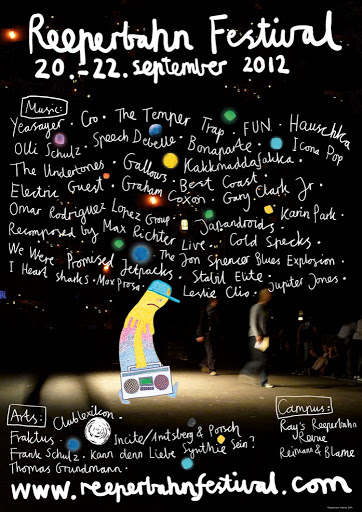 Reeperbahn Festival
20.-22. september 2012
Music:
Yeasayer · Cro · The Temper Trap · FUN · Hauschka
Olli Schulz · Speech Debelle · Bonaparte · Icona Pop
The Undertones · Gallows · Kakkmaddafakka ·
Electric Guest · Graham Coxon · Best Coast · Gary Clark Jr ·
Omar Rodriguez Lopez Group · Japandroids · Karin Park ·
Recomposed by Max Richter Live · Cold Specks ·
We Were Promised Jetpacks · The Jon Spencer Blues Explosion ·
I Heart Sharks · Max Prosa · Stabil Elite · Leslie Clio · Jupiter Jones ·
Arts: Clublexikon ·
Fraktus · Incite/Amtsberg & Porsch
Frank Schulz · Kann denn Liebe Synthie Sein?
Thomas Grundmann ·
Campus:
Ray's Reeperbahn
Revue
Reimann & Blame
www.reeperbahnfestival.com